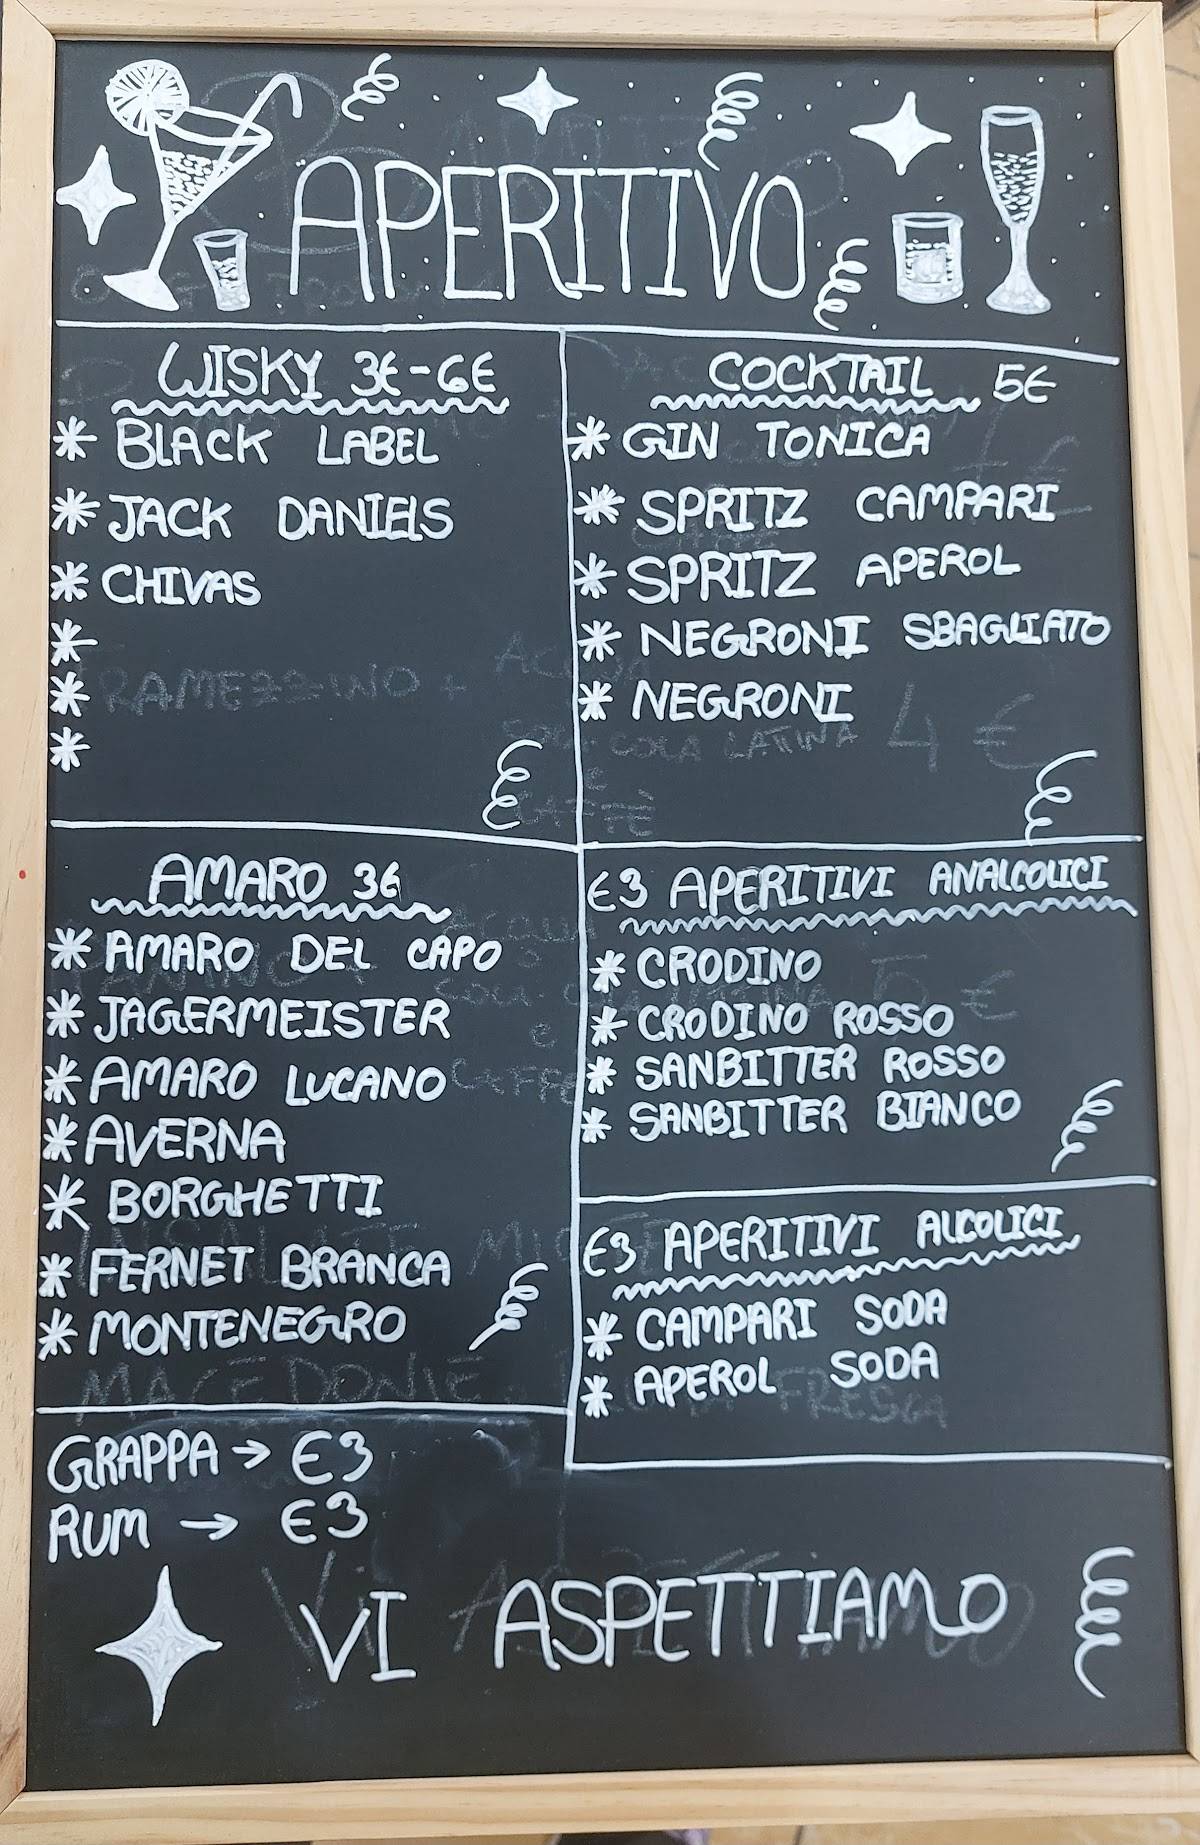 APERITIVO
WISKY 3€-6€
* BLACK LABEL
* JACK DANIELS
* CHIVAS
*
*
*
COCKTAIL 5€
* GIN TONICA
* SPRITZ CAMPARI
* SPRITZ APEROL
* NEGRONI SBAGLIATO
* NEGRONI
AMARO 3€
* AMARO DEL CAPO
* JAGERMEISTER
* AMARO LUCANO
* AVERNA
* BORGHETTI
* FERNET BRANCA
* MONTENEGRO
€3 APERITIVI ANALCOLICI
* CRODINO
* CRODINO ROSSO
* SANBITTER ROSSO
* SANBITTER BIANCO
€3 APERITIVI ALCOLICI
* CAMPARI SODA
* APEROL SODA
GRAPPA → €3
RUM → €3
VI ASPETTIAMO